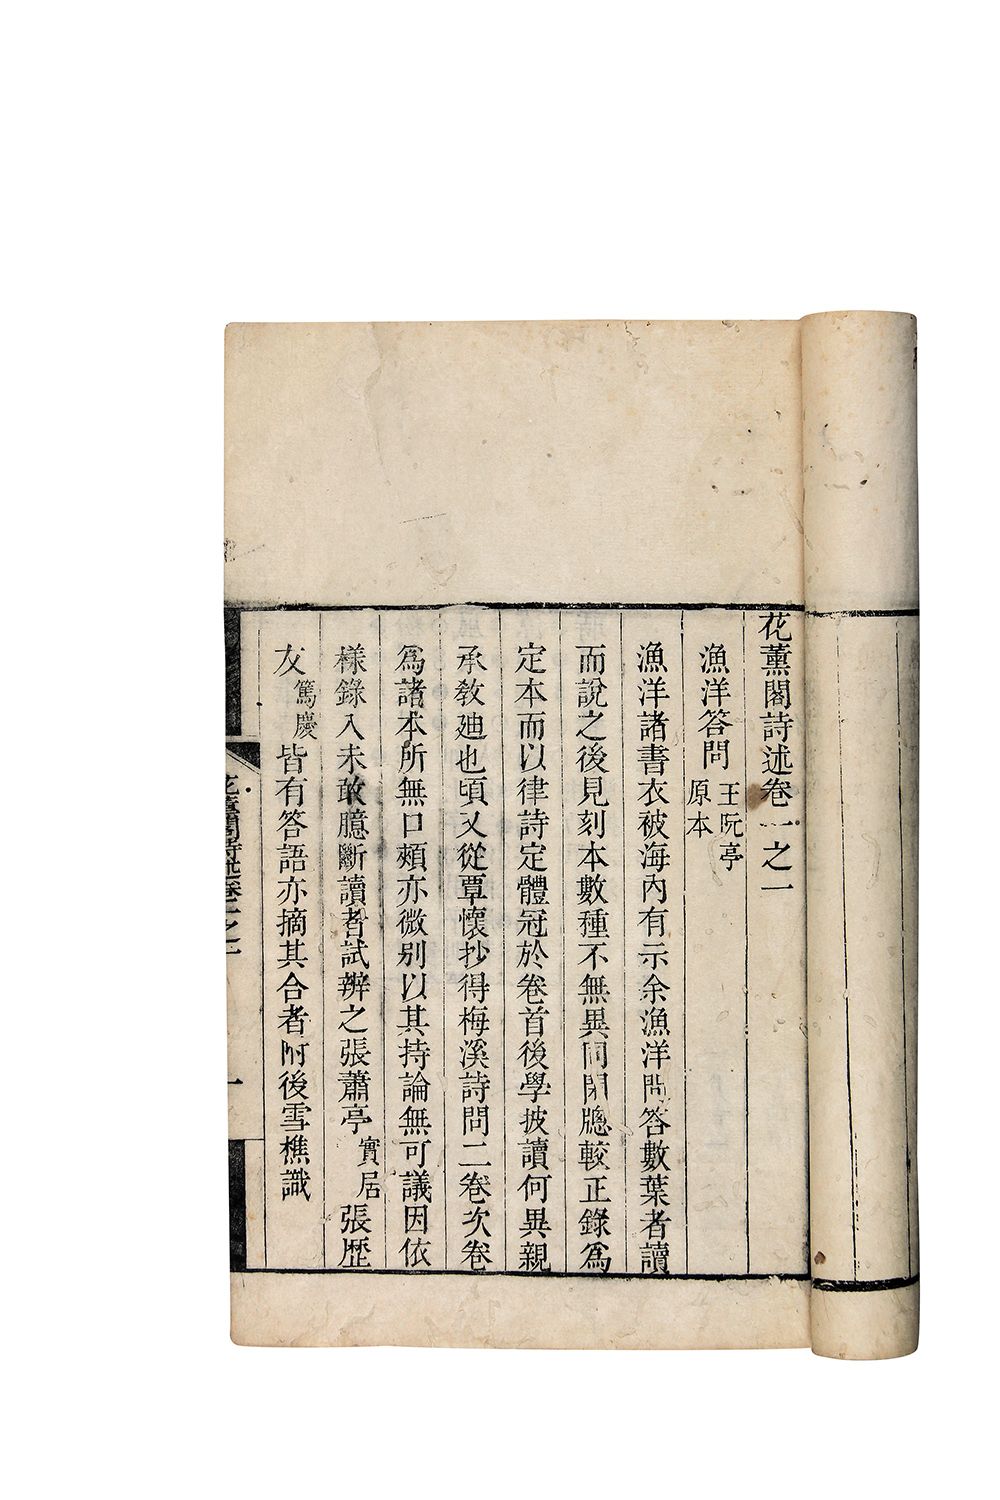 花薰閣詩述卷一之一
漁洋答問 王阮亭原本
漁洋諸書衣被海內有示余漁洋問答數葉者讀
而說之後見刻本數種不無異同閑牕較正錄為
定本而以律詩定體冠於卷首後學披讀何異親
承敎廸也頃又從覃懷抄得梅溪詩問二卷次卷
為諸本所無口頰亦微別以其持論無可議因依
樣錄入未敢臆斷讀者試辨之張蕭亭 實居 張歷
友 篤慶 皆有答語亦摘其合者附後雪樵識
花薰閣詩述卷一之一
一